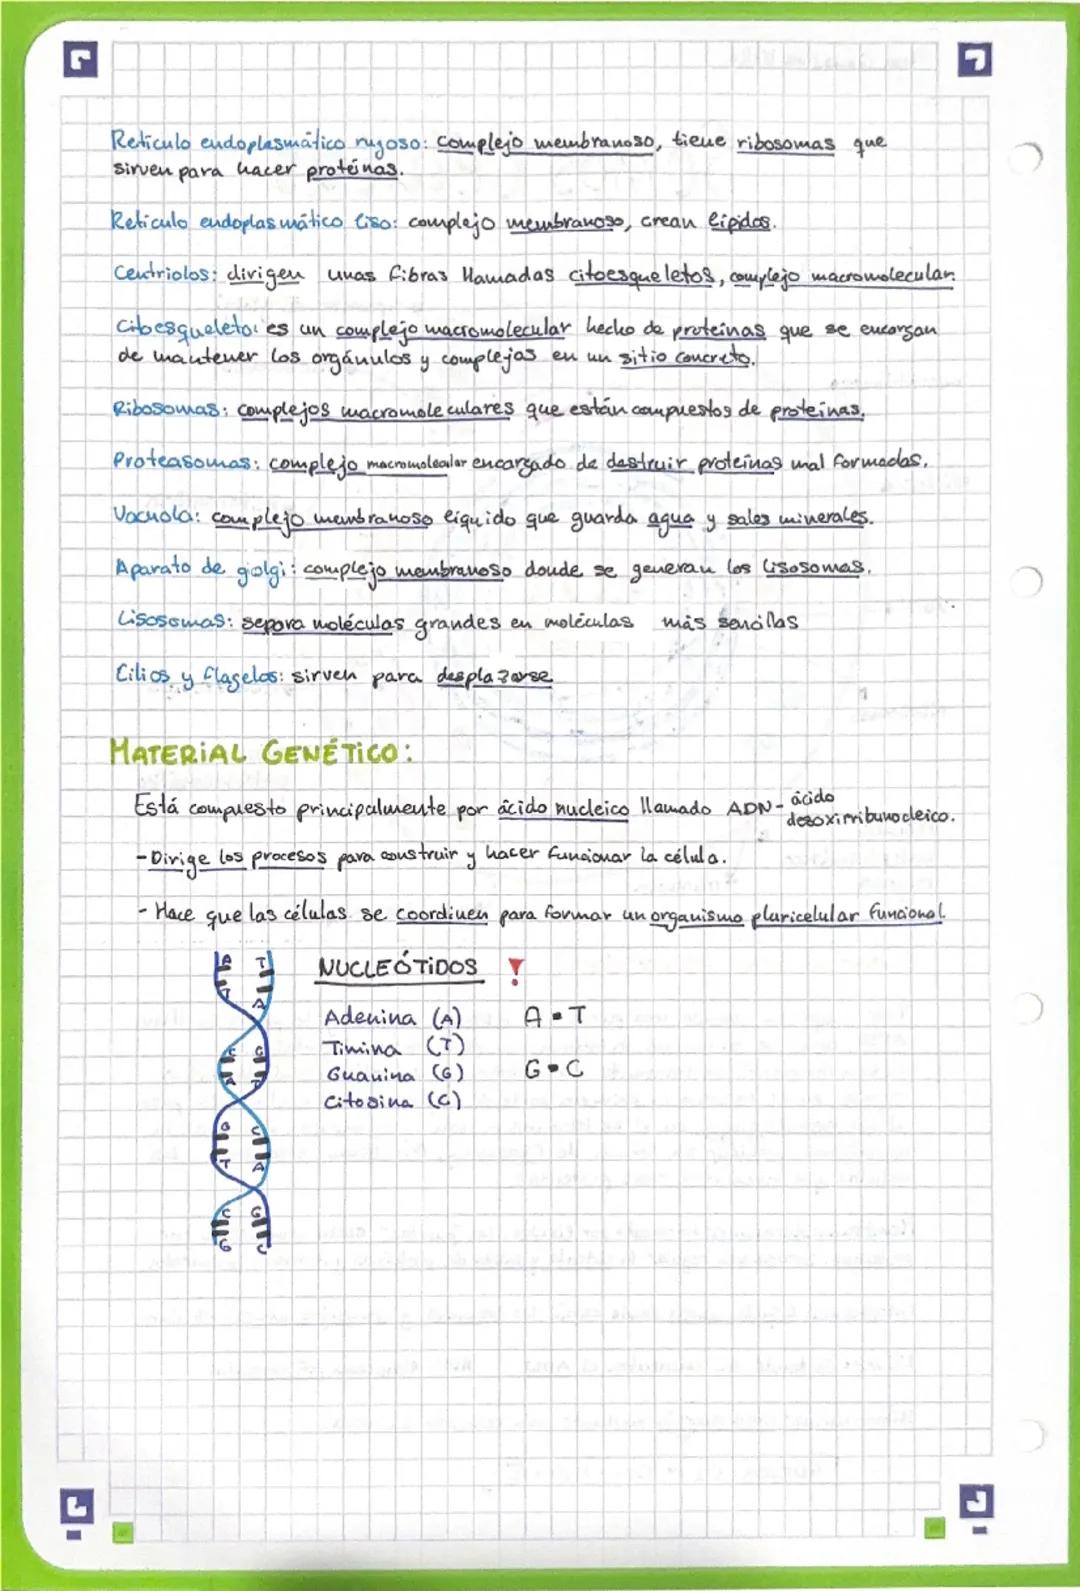 Retículo endoplasmático rugoso: complejo membranoso, tiene ribosomas que
sirven para hacer proteínas.
Retículo endoplasmático liso: complejo membranoso, crean lípidos.
Centriolos: dirigen unas fibras llamadas citoesqueletos, complejo macromolecular.
Citoesqueleto: es un complejo macromolecular hecho de proteínas que se encargan
de mantener los orgánulos y complejos en un sitio concreto.
Ribosomas: complejos macromoleculares que están compuestos de proteínas.
Proteasomas: complejo macromolecular encargado de destruir proteínas mal formadas.
Vacuola: complejo membranoso líquido que guarda agua y sales minerales.
Aparato de golgi: complejo membranoso donde se generan los lisosomas.
Lisosomas: separa moléculas grandes en moléculas más sencillas
Cilios y flagelos: sirven para desplazarse
MATERIAL GENÉTICO:
Está compuesto principalmente por ácido nucleico llamado ADN- ácido
desoxirribunocleico.
- Dirige los procesos para construir y hacer funcionar la célula.
- Hace que las células se coordinen para formar un organismo pluricelular funcional
NUCLEÓTIDOS !
Adenina (A) A•T
Timina (T)
Guanina (G) G•C
Citosina (C)
A T
T A
C G
A T
G C
T A
C G
G C